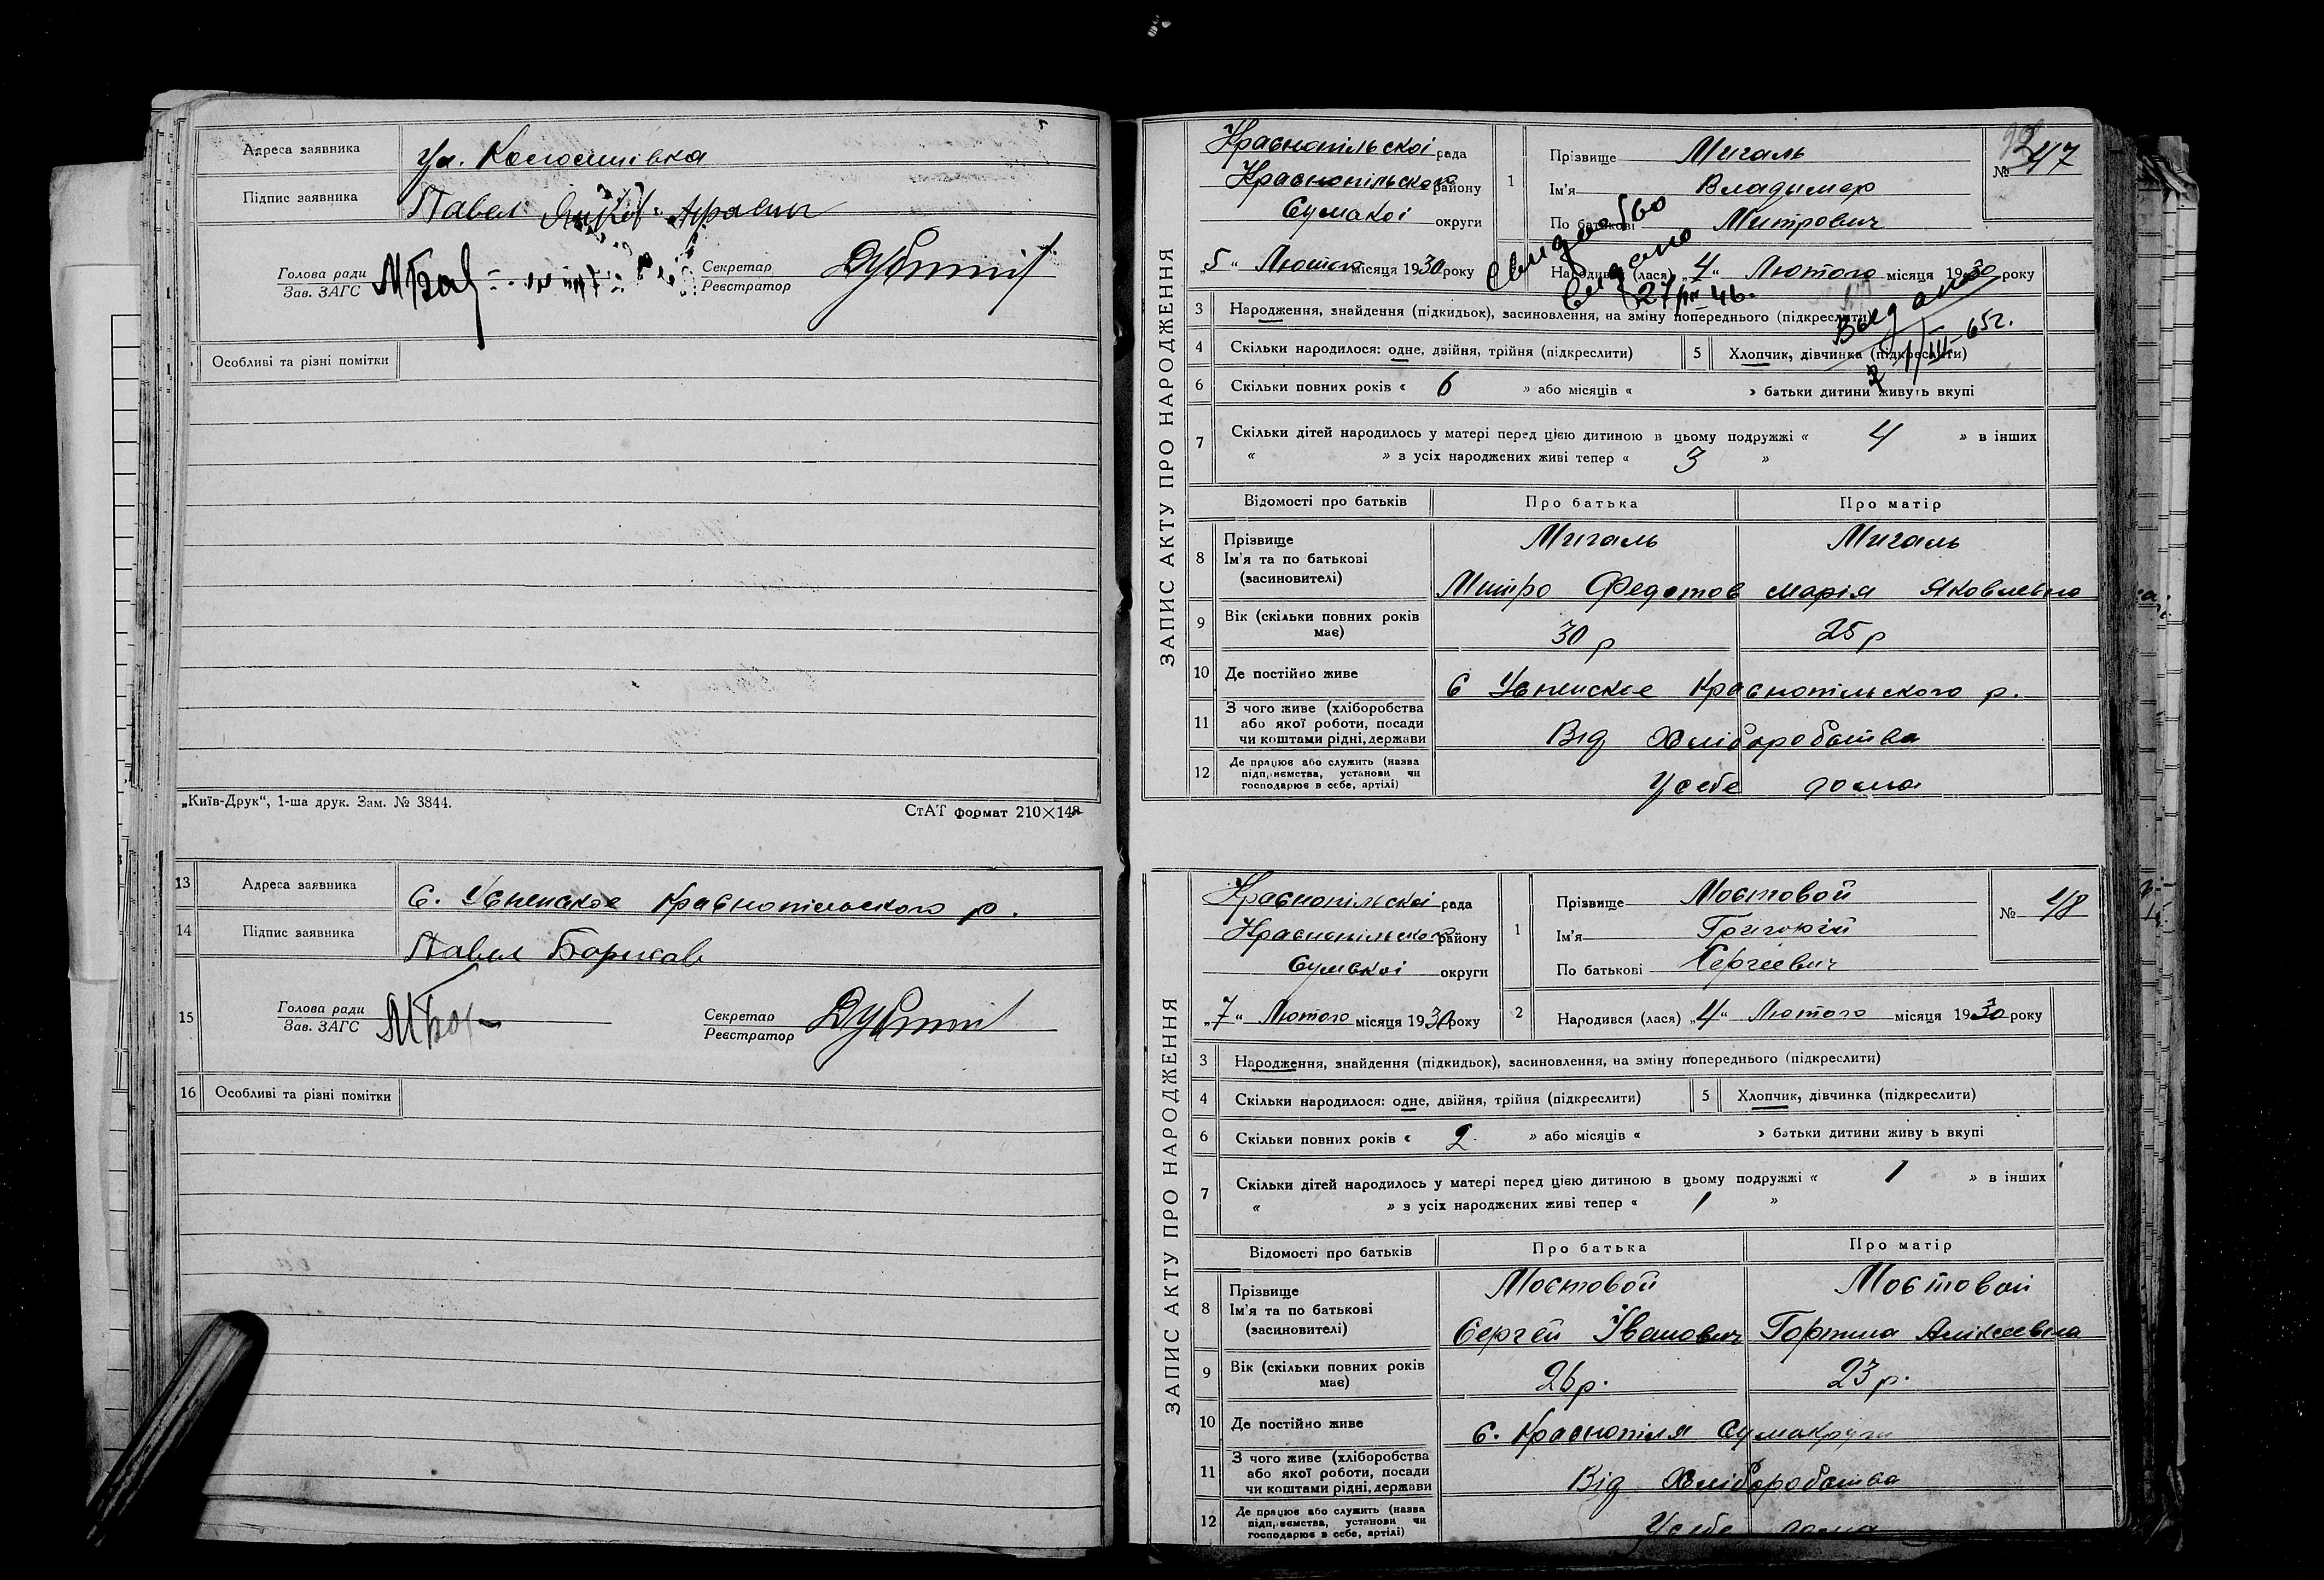 Адреса заявника
Підпис заявника
Павел
Голова ради
Зав. ЗАГС
Секретар
Реєстратор
Особливі та різні помітки
„Київ-Друк“, 1-ша друк. Зам. № 3844.
СтАТ формат 210×148
13 Адреса заявника
С. Успенское Краснопільского р.
14 Підпис заявника
Павел Борисов
15 Голова ради
Зав. ЗАГС
Секретар
Реєстратор
16 Особливі та різні помітки
ЗАПИС АКТУ ПРО НАРОДЖЕННЯ
Краснопільскоі рада
Краснопільского району
Сумскоі округи
„5“ Лютого місяця 1930 року
1 Прізвище Мигаль
Ім'я Владимер
По батькові Митрович
№ 47
Народився (лася) „4“ Лютого місяця 1930 року
Свидоцтво
видано
27/III 46.
Выдано
1/III-65г.
3 Народження, знайдення (підкидьок), засиновлення, на зміну попереднього (підкреслити)
4 Скільки народилося: одне, двійня, трійня (підкреслити) 5 Хлопчик, дівчинка (підкреслити)
6 Скільки повних років « 6 » або місяців « » батьки дитини живуть вкупі
7 Скільки дітей народилось у матері перед цією дитиною в цьому подружжі « 4 » в інших
« » з усіх народжених живі тепер « 3 »
Відомості про батьків Про батька Про матір
8 Прізвище
Ім'я та по батькові
(засиновителі)
Мигаль Мигаль
Митро Федотов Марія Яковлевна
9 Вік (скільки повних років має) 30 р 25 р
10 Де постійно живе С Успенское Краснопільского р.
11 З чого живе (хліборобства
або якої роботи, посади
чи коштами рідні, держави
Від Хліборобства
12 Де працює або служить (назва
підприємства, установи чи
господарює в себе, артілі)
У себе дома
ЗАПИС АКТУ ПРО НАРОДЖЕННЯ
Краснопільскоі рада
Краснопільского району
Сумскоі округи
„7“ Лютого місяця 1930 року
1 Прізвище Мостовой
Ім'я Григорій
По батькові Сергієвич
№ 48
2 Народився (лася) „4“ Лютого місяця 1930 року
3 Народження, знайдення (підкидьок), засиновлення, на зміну попереднього (підкреслити)
4 Скільки народилося: одне, двійня, трійня (підкреслити) 5 Хлопчик, дівчинка (підкреслити)
6 Скільки повних років « 2 » або місяців « » батьки дитини живуть вкупі
7 Скільки дітей народилось у матері перед цією дитиною в цьому подружжі « 1 » в інших
« » з усіх народжених живі тепер « 1 »
Відомості про батьків Про батька Про матір
8 Прізвище
Ім'я та по батькові
(засиновителі)
Мостовой Мостовой
Сергей Іванович Алексеевна
9 Вік (скільки повних років має) 26 р. 23 р.
10 Де постійно живе С. Краснопілля
11 З чого живе (хліборобства
або якої роботи, посади
чи коштами рідні, держави
Від Хліборобства
12 Де працює або служить (назва
підприємства, установи чи
господарює в себе, артілі)
У себе дома